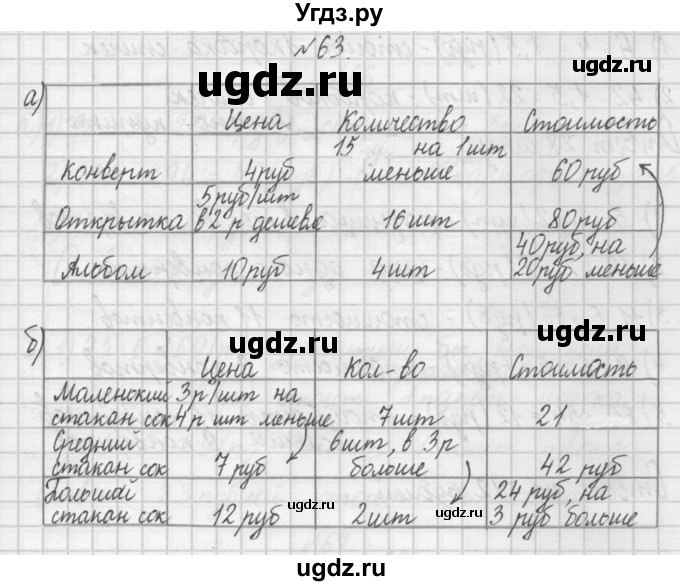 Угдз.ру
№63.
ugdz.ru
ugdz.ru
а)
Цена Количество Стоимость
Конверт 4руб 15 на 1шт меньше 60руб
Открытка 5руб/шт в 2 р дешевле 16шт 80руб
Альбом 10руб 4шт 40руб, на 20руб меньше
ugdz.ru
б)
Цена Кол-во Стоимость
Маленский стакан сок 3р/шт на 4 р. шт меньше 7шт 21
ugdz.ru
Средний стакан сок 7 руб 6шт, в 3р больше 42 руб
Большай стакан сок 12 руб 2шт 24 руб, на 3 руб больше
ugdz.ru
ugdz.ru
ugdz.ru